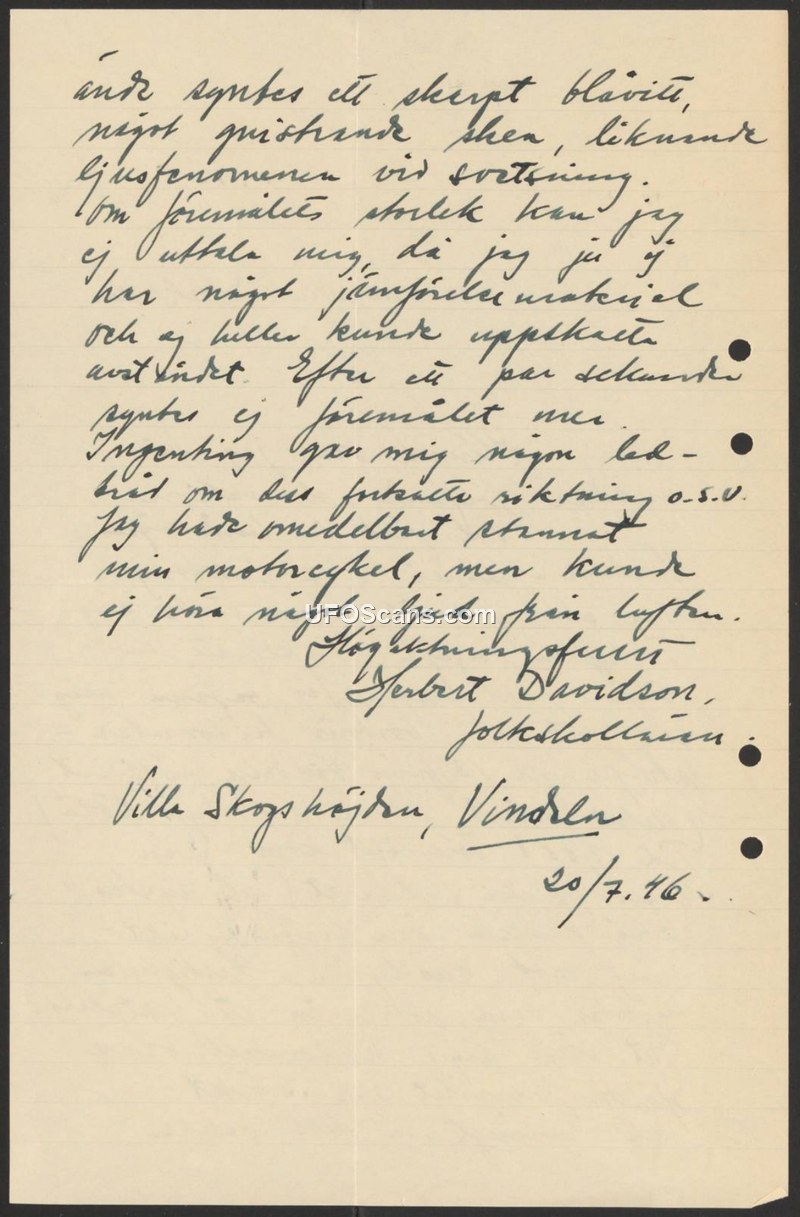 ände syntes ett skarpt blåvitt,
något gnistrande sken, liknande
ljusfenomenen vid svetsning.
Om föremålets storlek kan jag
ej uttala mig, då jag ju ej
har något jämförelsematerial
och ej heller kunde uppskatta
avståndet. Efter ett par sekunder
syntes ej föremålet mer.
Ingenting gav mig någon led-
tråd om dess fortsatta riktning o.s.v.
Jag hade omedelbart stannat
min motorcykel, men kunde
ej höra något ljud från luften.
UFOScans.com
Högaktningsfullt
Herbert Davidson,
folkskollärare.
Villa Skogshöjden, Vindeln
20/7.46.